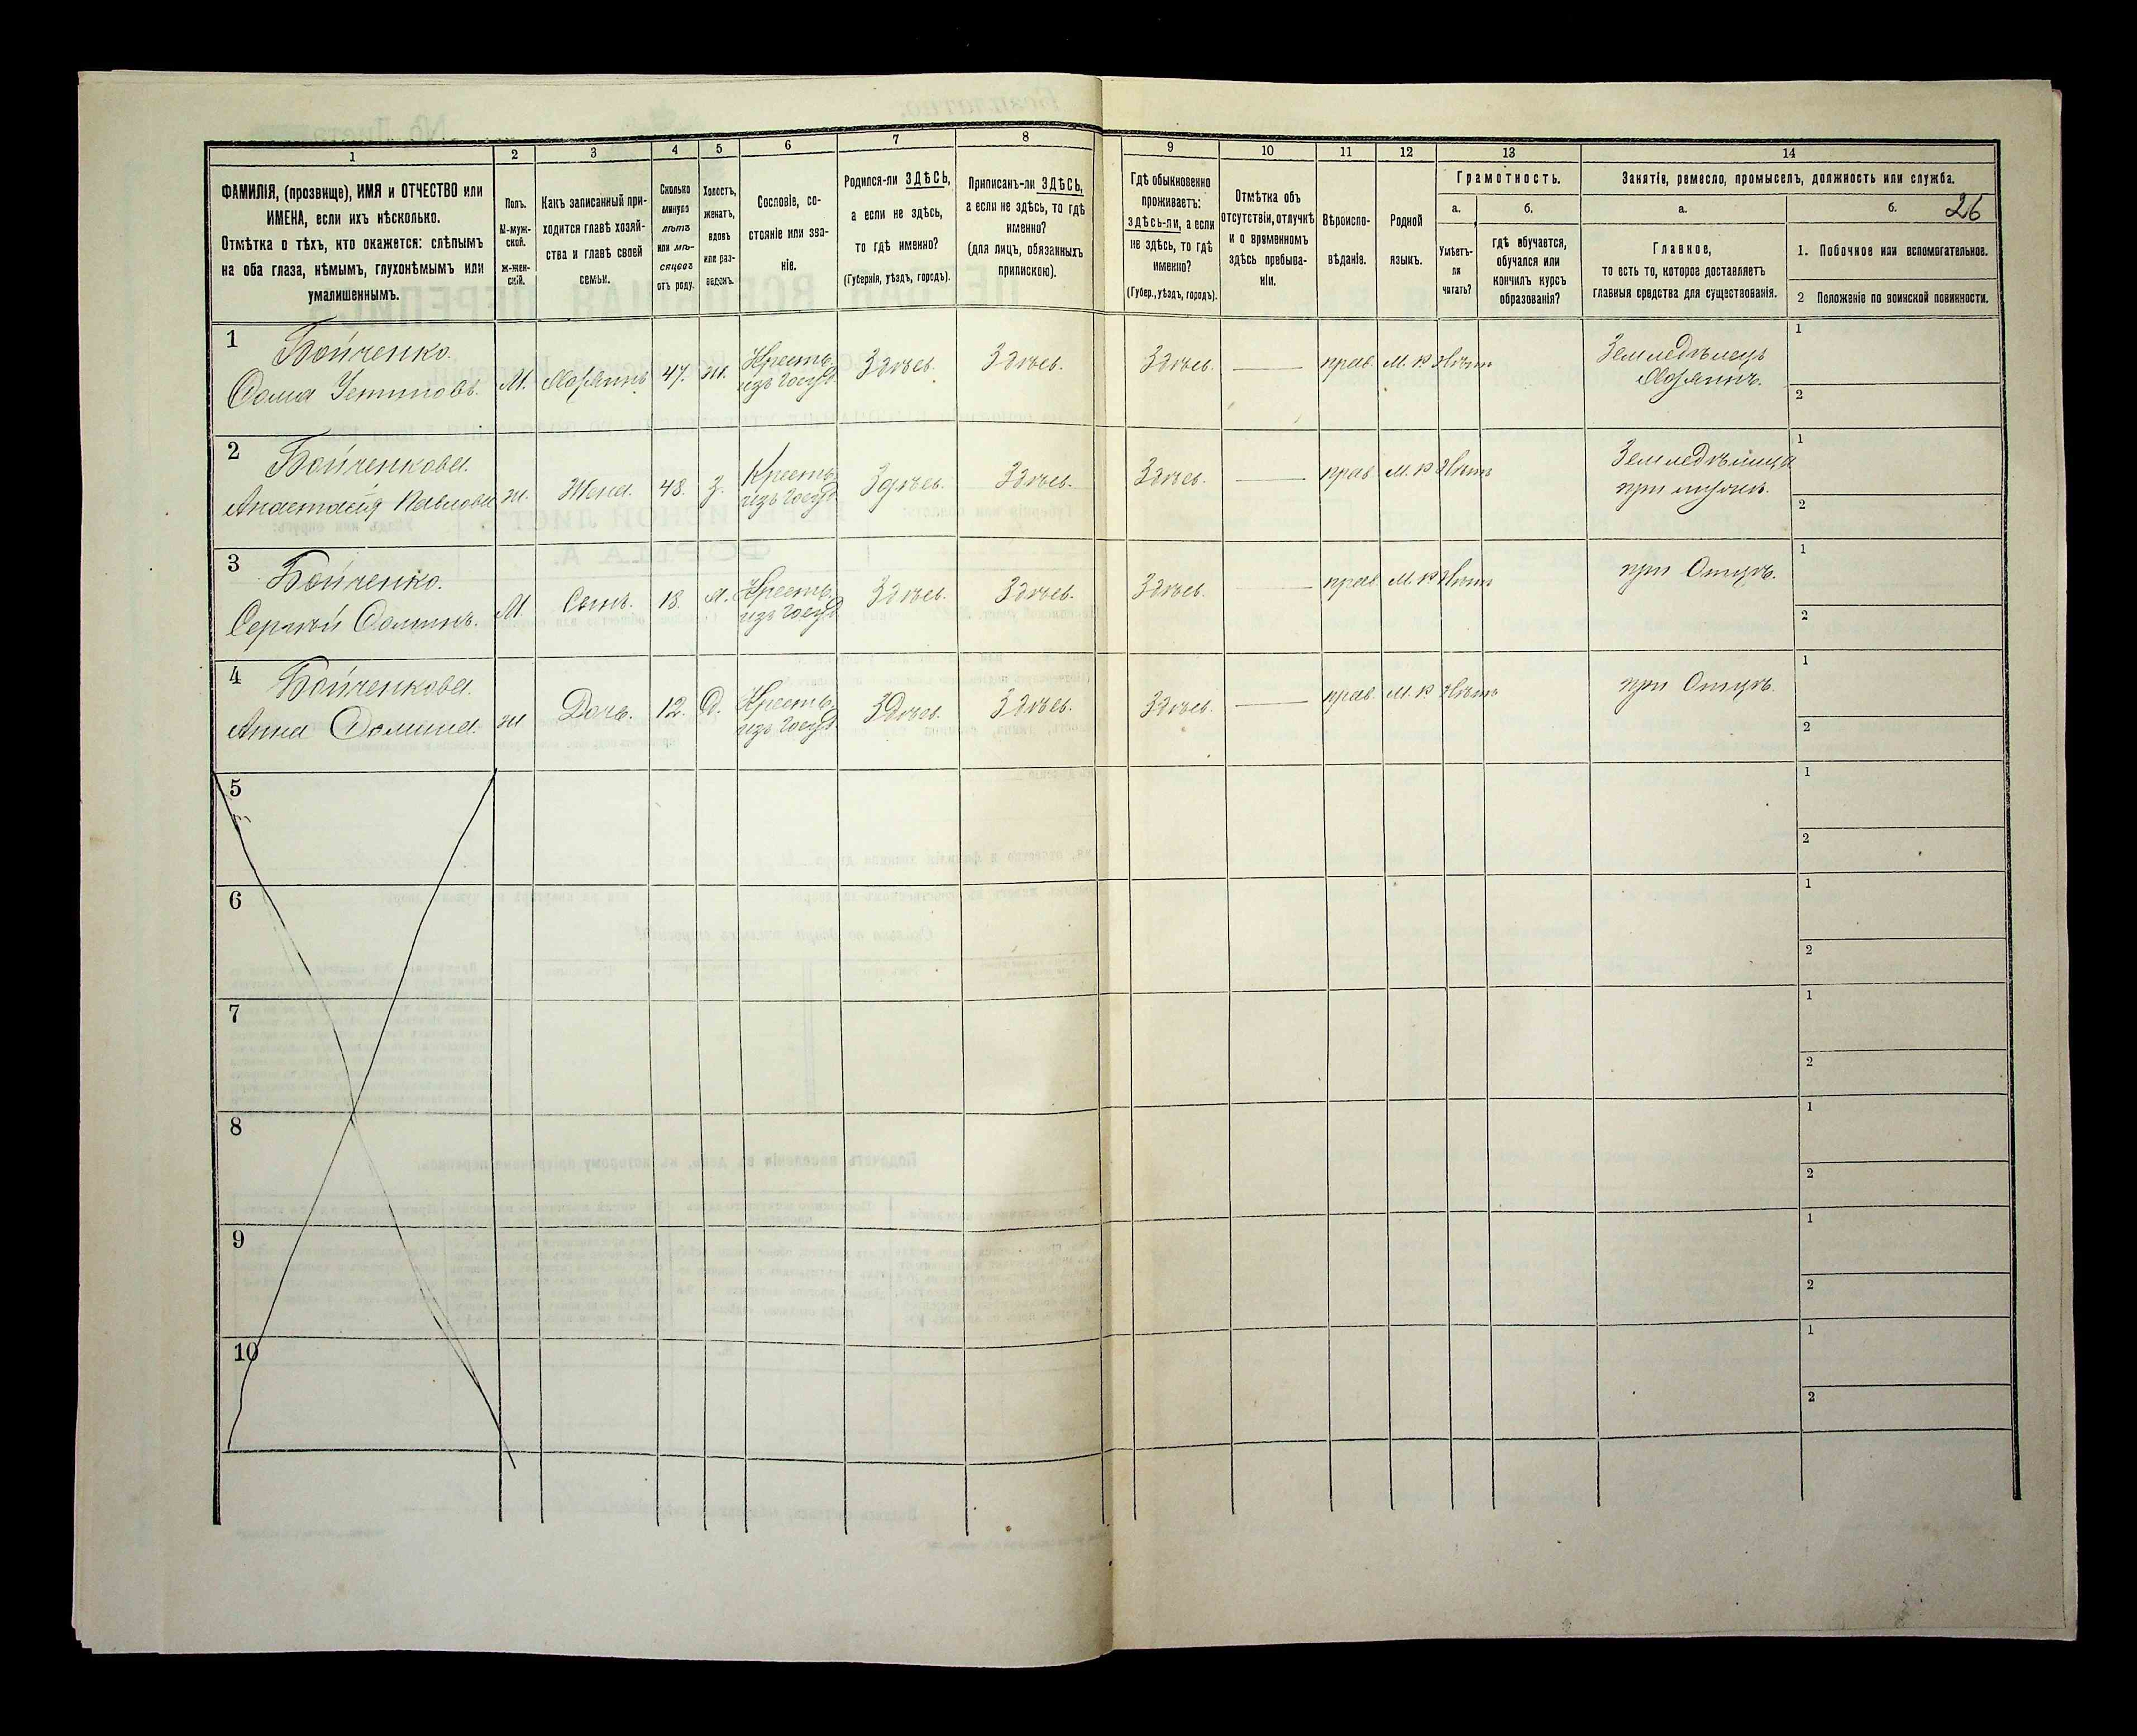 26
1 2 3 4 5 6 7 8 9 10 11 12 13 14
ФАМИЛІЯ, (прозвище), ИМЯ и ОТЧЕСТВО или
ИМЕНА, если ихъ нѣсколько.
Отмѣтка о тѣхъ, кто окажется: слѣпымъ
на оба глаза, нѣмымъ, глухонѣмымъ или
умалишеннымъ.
Полъ.
М-муж-
ской.
ж-жен-
скій.
Какъ записанный при-
ходится главѣ хозяй-
ства и главѣ своей
семьи.
Сколько
минуло
лѣтъ
или мѣ-
сяцевъ
отъ роду.
Холостъ,
женатъ,
вдовъ
или раз-
веденъ.
Сословіе, со-
стояніе или зва-
ніе.
Родился-ли ЗДѢСЬ,
а если не здѣсь,
то гдѣ именно?
(Губернія, уѣздъ, городъ).
Приписанъ-ли ЗДѢСЬ,
а если не здѣсь, то гдѣ
именно?
(для лицъ, обязанныхъ
припискою).
Гдѣ обыкновенно
проживаетъ:
здѣсь-ли, а если
не здѣсь, то гдѣ
именно?
(Губер., уѣздъ, городъ).
Отмѣтка объ
отсутствіи, отлучкѣ
и о временномъ
здѣсь пребыва-
ніи.
Вѣроиспо-
вѣданіе.
Родной
языкъ.
Грамотность.
а.
Умѣетъ-
ли
читать?
б.
гдѣ обучается,
обучался или
кончилъ курсъ
образованія?
Занятіе, ремесло, промыселъ, должность или служба.
а.
Главное,
то есть то, которое доставляетъ
главныя средства для существованія.
б.
1. Побочное или вспомогательное.
2 Положеніе по воинской повинности.
1
Бойченко.
Фома Устиновъ. М. Хозяинъ 47. ж. Кресть. Здѣсь. Здѣсь. Здѣсь. прав. М. Р. Нѣтъ Земледѣлецъ
изъ Госуд. Хозяинъ.
1
2
2
Бойченкова.
Анастасія Павлова ж. Жена. 48. З. Кресть. Здѣсь. Здѣсь. Здѣсь. прав. М. Р. Нѣтъ Земледѣлица
изъ Госуд. при мужѣ.
1
2
3
Бойченко.
Сергѣй Фоминъ. М. Сынъ. 18. Х. Кресть. Здѣсь. Здѣсь. Здѣсь. прав. М. Р. Нѣтъ при Отцѣ.
изъ Госуд.
1
2
4
Бойченкова.
Анна Фомина. ж Дочь. 12. Д. Кресть. Здѣсь. Здѣсь. Здѣсь. прав. М. Р. Нѣтъ при Отцѣ.
изъ Госуд.
1
2
5
1
2
6
1
2
7
1
2
8
1
2
9
1
2
10
1
2